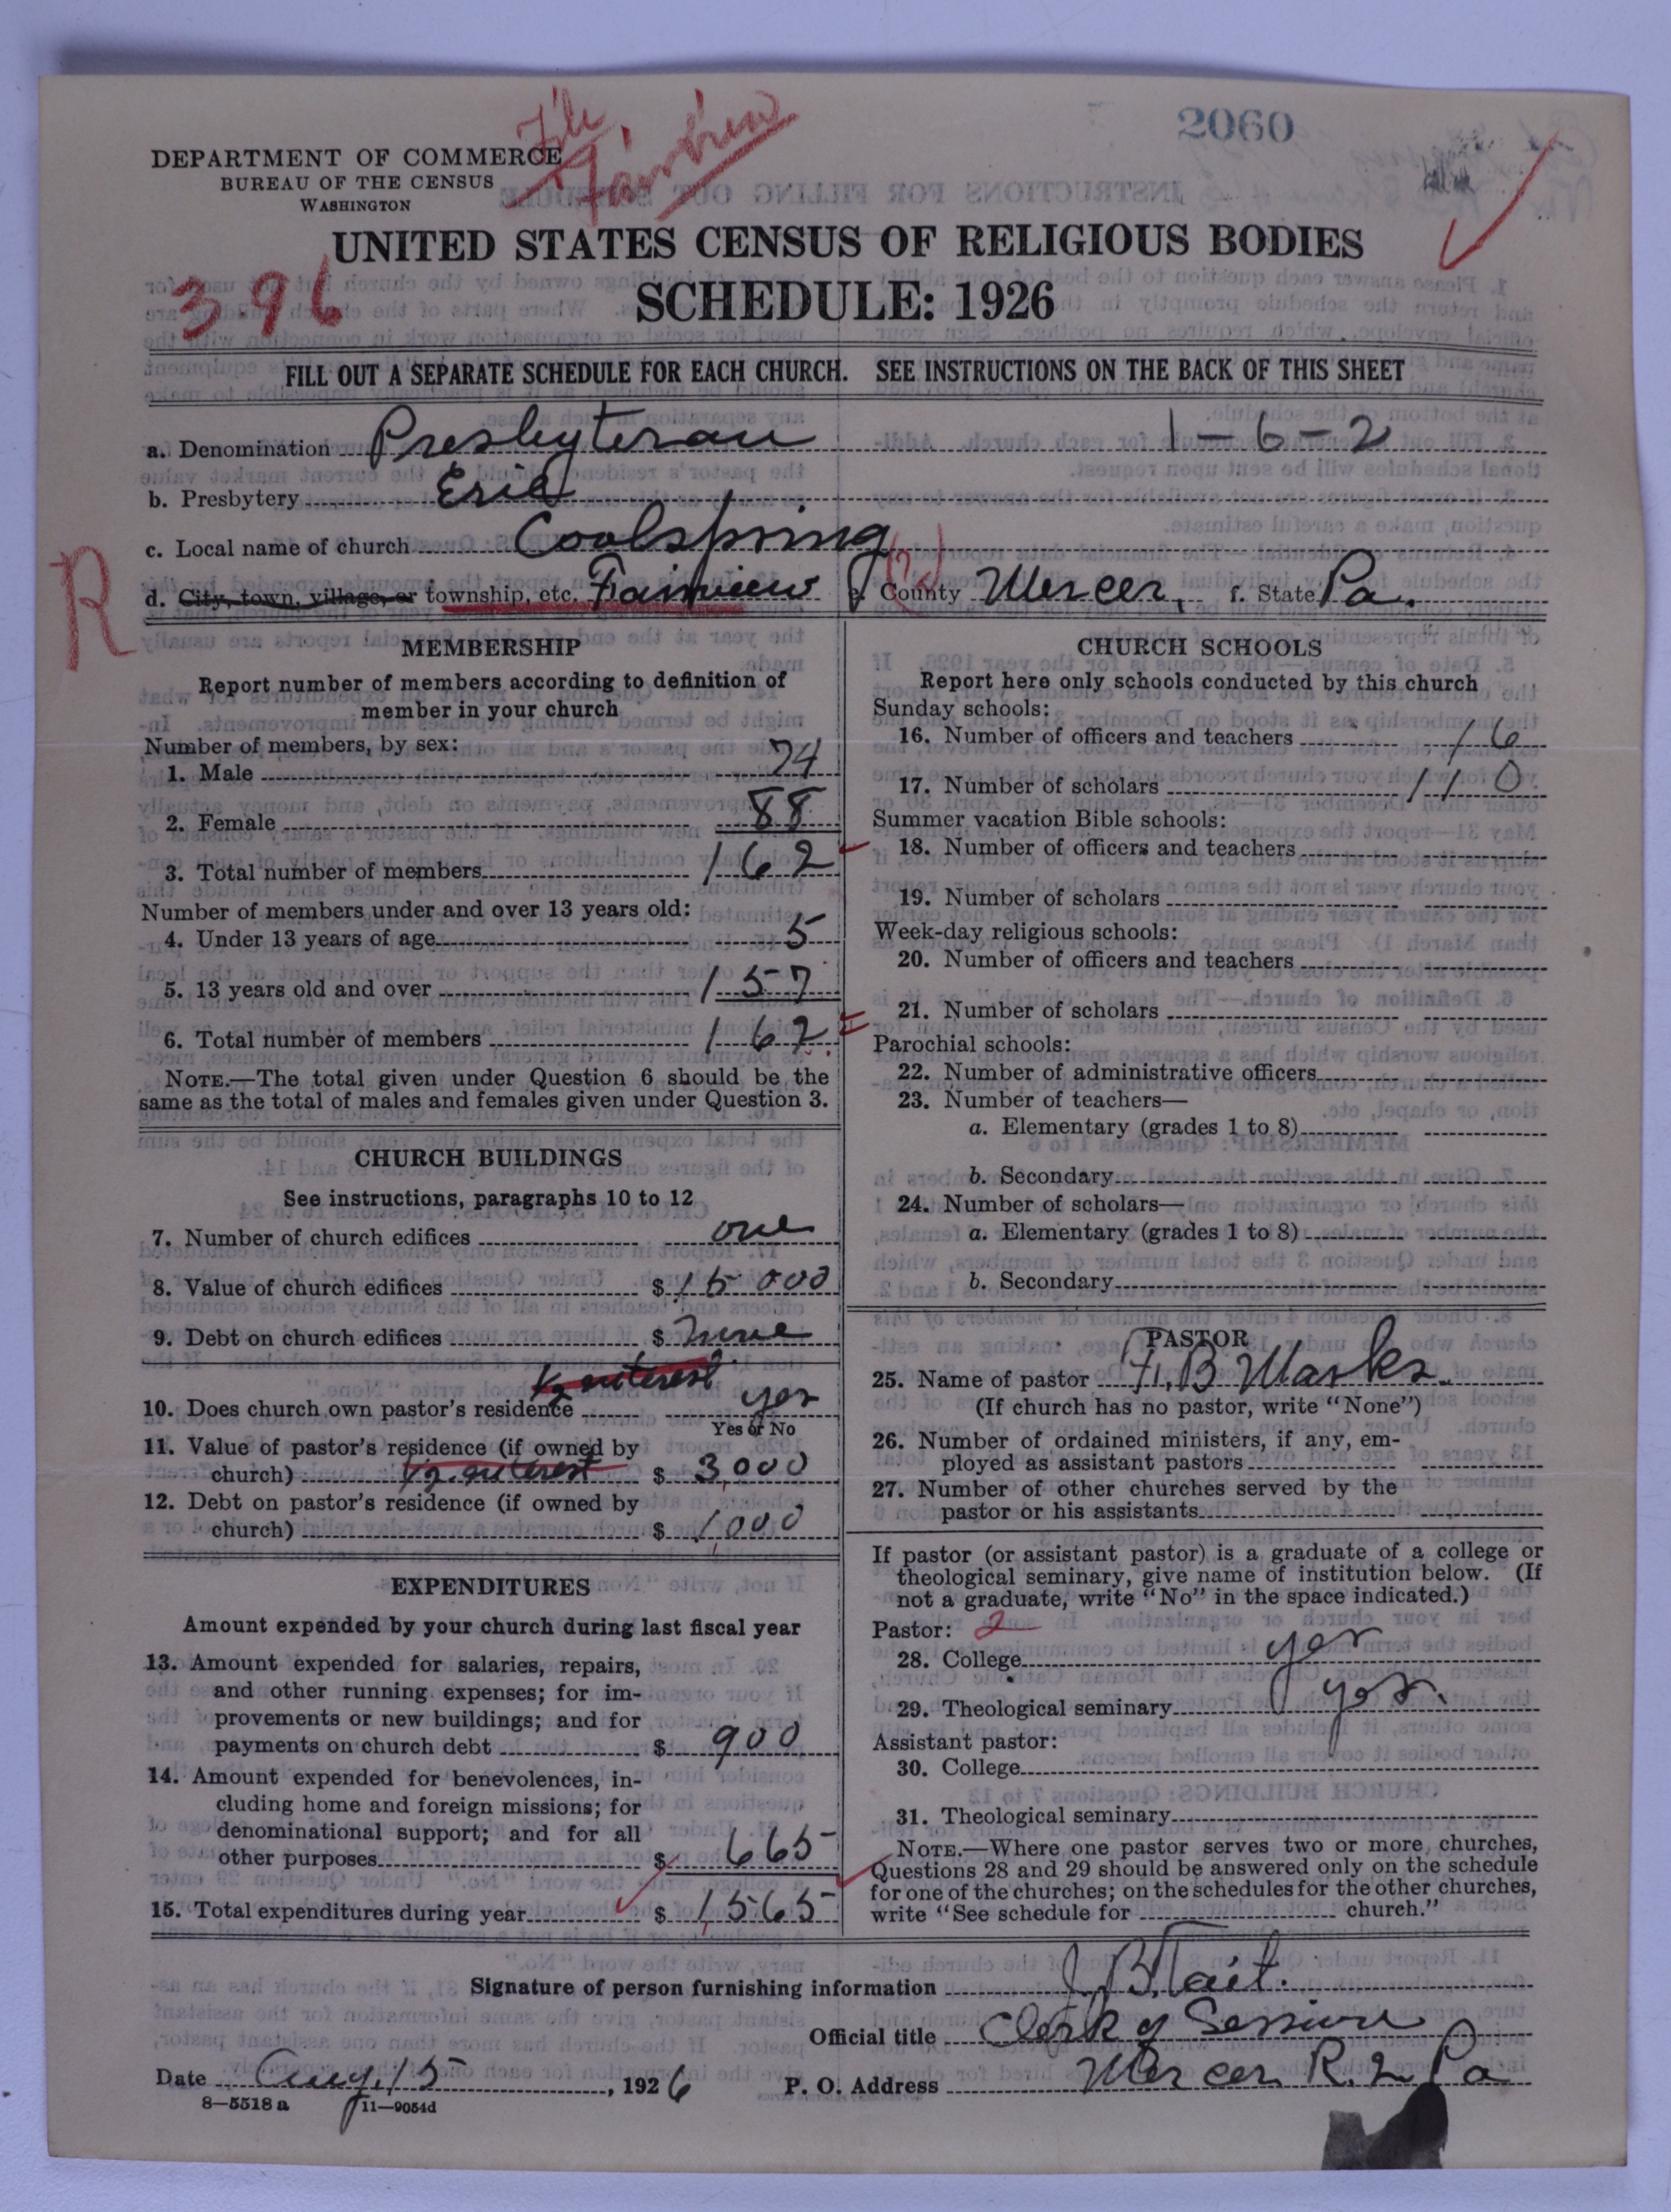 File
Fairview
2060
DEPARTMENT OF COMMERCE
BUREAU OF THE CENSUS
WASHINGTON
UNITED STATES CENSUS OF RELIGIOUS BODIES
396
SCHEDULE: 1926
FILL OUT A SEPARATE SCHEDULE FOR EACH CHURCH. SEE INSTRUCTIONS ON THE BACK OF THIS SHEET
a. Denomination Presbyteran 1-6-2
b. Presbytery Erie
c. Local name of church Coolspring
R
d. City, town, village, or township, etc. Fairview e. County Mercer, f. State Pa.
MEMBERSHIP
Report number of members according to definition of
member in your church
Number of members, by sex:
1. Male 74
2. Female 88
3. Total number of members 162
Number of members under and over 13 years old:
4. Under 13 years of age 5
5. 13 years old and over 157
6. Total number of members 162
NOTE.—The total given under Question 6 should be the
same as the total of males and females given under Question 3.
CHURCH BUILDINGS
See instructions, paragraphs 10 to 12
7. Number of church edifices one
8. Value of church edifices $ 15 000
9. Debt on church edifices $ None
1/2 interest
10. Does church own pastor's residence yes
Yes or No
11. Value of pastor's residence (if owned by
church) 1/2 interest $ 3,000
12. Debt on pastor's residence (if owned by
church) $ 1,000
EXPENDITURES
Amount expended by your church during last fiscal year
13. Amount expended for salaries, repairs,
and other running expenses; for im-
provements or new buildings; and for
payments on church debt $ 900
14. Amount expended for benevolences, in-
cluding home and foreign missions; for
denominational support; and for all
other purposes $ 665
15. Total expenditures during year $ 1,565
CHURCH SCHOOLS
Report here only schools conducted by this church
Sunday schools:
16. Number of officers and teachers 16
17. Number of scholars 110
Summer vacation Bible schools:
18. Number of officers and teachers
19. Number of scholars
Week-day religious schools:
20. Number of officers and teachers
21. Number of scholars
Parochial schools:
22. Number of administrative officers
23. Number of teachers—
a. Elementary (grades 1 to 8)
b. Secondary
24. Number of scholars—
a. Elementary (grades 1 to 8)
b. Secondary
PASTOR
25. Name of pastor H. B Marks.
(If church has no pastor, write "None")
26. Number of ordained ministers, if any, em-
ployed as assistant pastors
27. Number of other churches served by the
pastor or his assistants
If pastor (or assistant pastor) is a graduate of a college or
theological seminary, give name of institution below. (If
not a graduate, write "No" in the space indicated.)
Pastor: 2
28. College yes
29. Theological seminary yes.
Assistant pastor:
30. College
31. Theological seminary
NOTE.—Where one pastor serves two or more churches,
Questions 28 and 29 should be answered only on the schedule
for one of the churches; on the schedules for the other churches,
write "See schedule for church."
Signature of person furnishing information J. B. Tait.
Official title Clerk of Session
Date Aug. 15, 1926 P. O. Address Mercer R. 2 Pa
8—5518 a 11—9054d